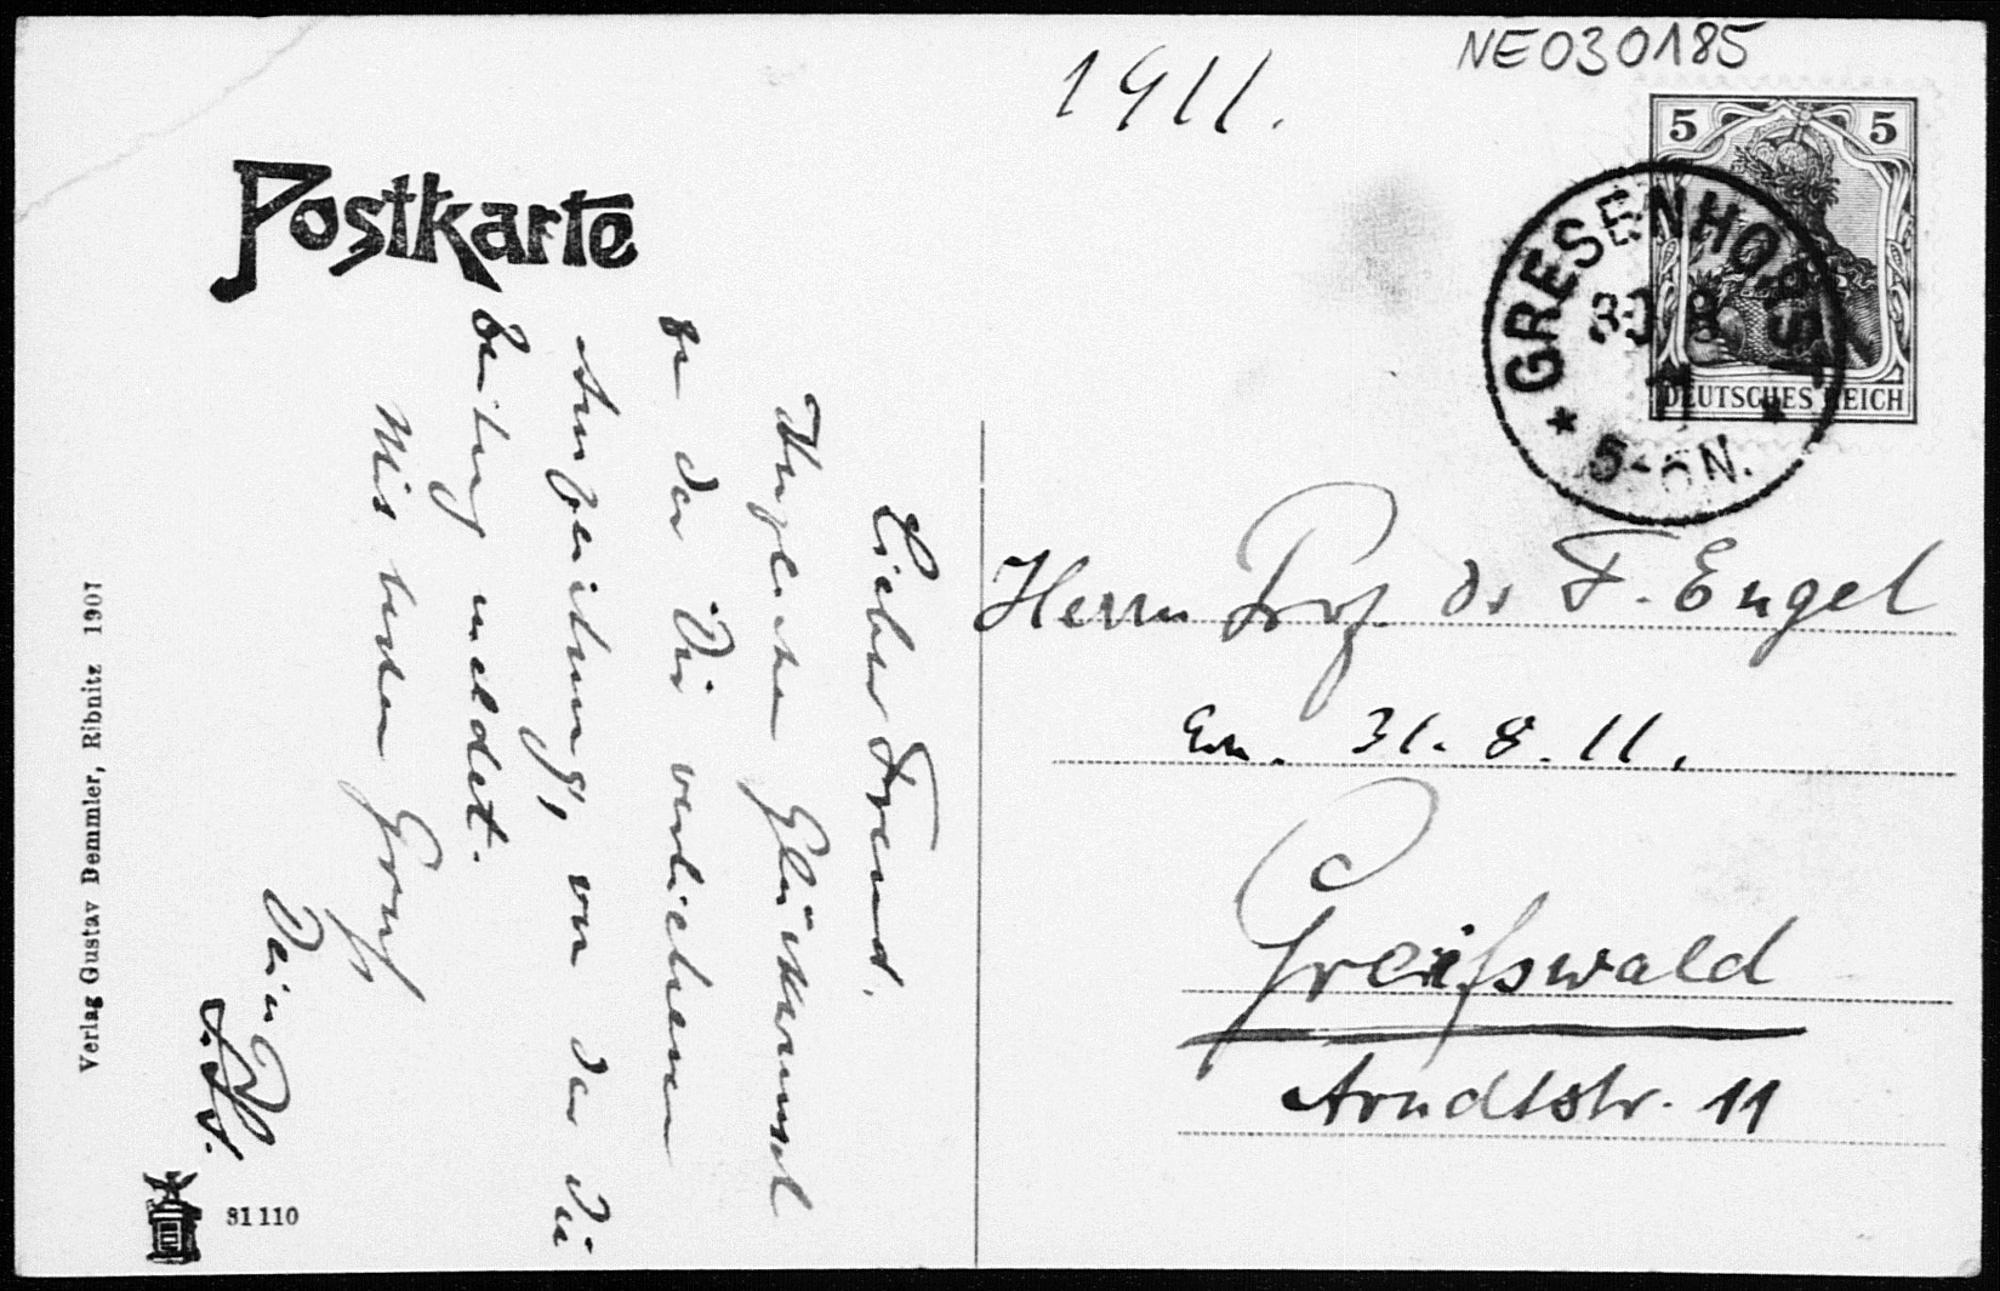 NE030185
1911.
Postkarte
5 5
DEUTSCHES REICH
GRESENHORST
30 8
11
* 5-6N. *
Herrn Prof. Dr F. Engel
31.8.11.
Greifswald
Arndtstr. 11
Lieber Freund.
Glückwunsch
der Dir verliehenen
Auszeichnung, von der die
Zeitung meldet.
Mit besten Gruß
Dein
Verlag Gustav Demmler, Ribnitz 1907
31110